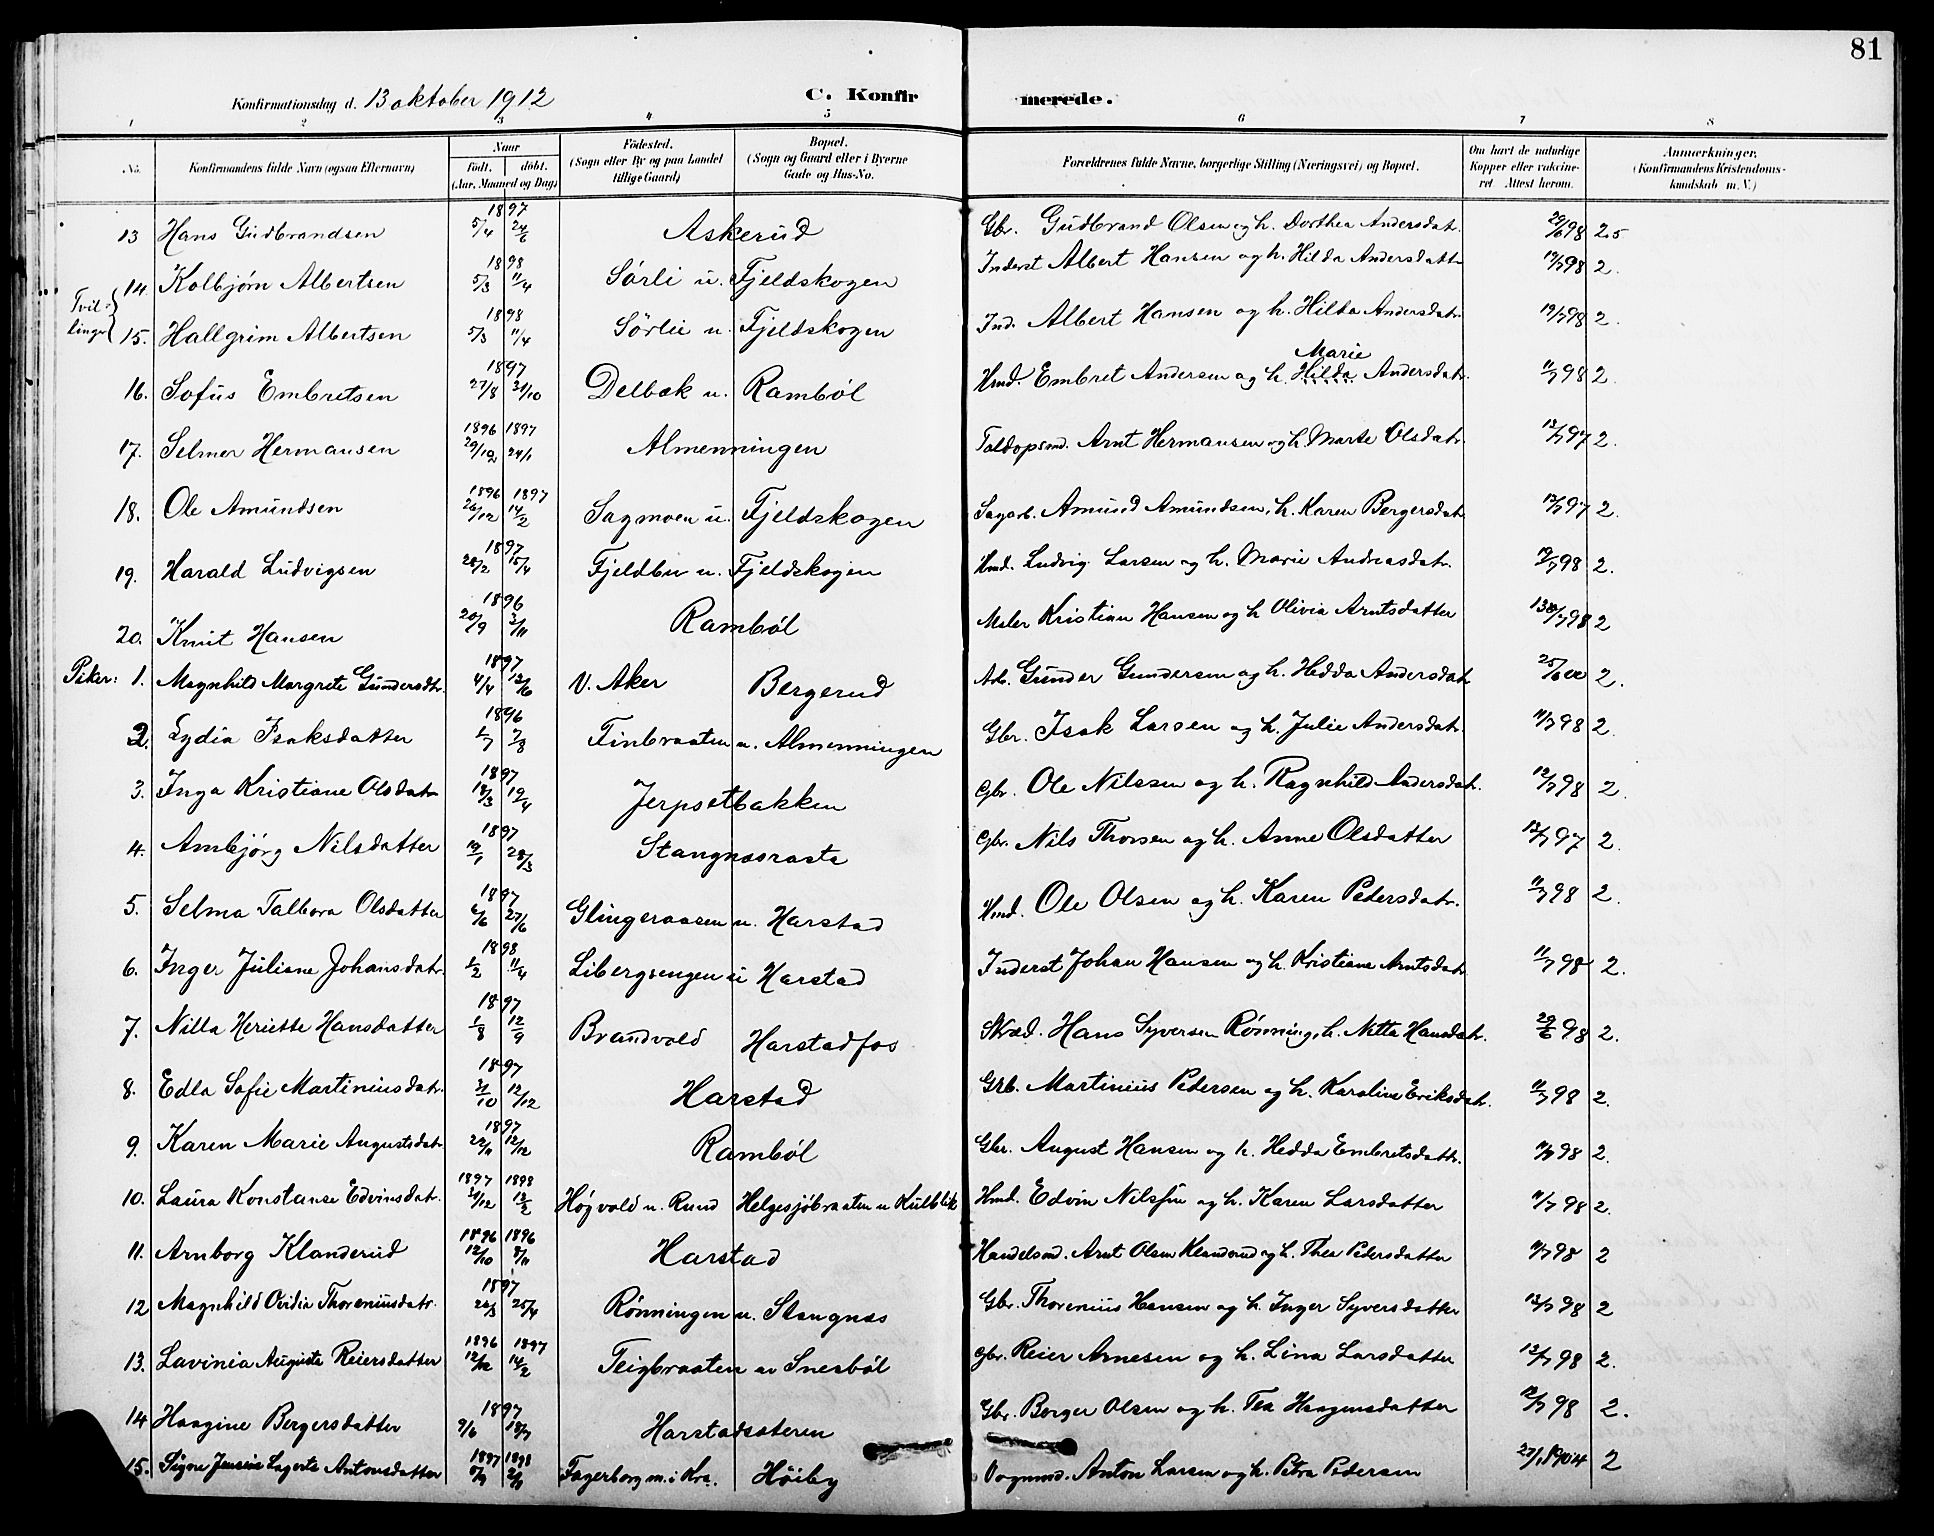 81
Konfirmationsdag d. 13 oktober 1912 C. Konfirmerede.
1 2 3 4 5 6 7 8
No. Konfirmandens fulde Navn (ogsaa Efternavn) Naar født. døbt. (Aar, Maaned og Dag) Fødested. (Sogn eller By og paa Landet tillige Gaard) Bopæl. (Sogn og Gaard eller i Byerne Gade og Hus-No. Forældrenes fulde Navne, borgerlige Stilling (Næringsvei) og Bopæl. Om havt de naturlige Kopper eller vaccineret. Attest herom. Anmærkninger, (Konfirmandens Kristendomskundskab m. V.)
13 Hans Gudbrandsen 1897 5/4 24/6 Askerud Gbr. Gudbrand Olsen og h. Dorthea Andersdatr. 29/6 98 2.5
Tvillinger
14. Kolbjørn Albertsen 1898 5/3 11/4 Sørli u. Fjeldskogen Inderst Albert Hansen og h. Hilda Andersdattr 12/7 98 2.
15. Hallgrim Albertsen 1898 5/3 11/4 Sørlie u. Fjeldskogen Ind. Albert Hansen og h. Hilda Andersdatr. 12/7 98 2.
16. Sofus Embretsen 1897 27/8 31/10 Delbæk u. Rambøl Hmd. Embret Andersen og h. Marie Hilda Andersdatr. 11/7 98 2.
17. Selmer Hermansen 1896 1897 29/12 24/1 Almenningen Arnt Hermansen og h. Marte Olsdatr. 12/7 97 2.
18. Ole Amundsen 1896 1897 26/12 14/2 Sagmoen u. Fjeldskogen Sagarb. Amund Amundsen, h. Karen Bergersdatr. 12/7 97 2.
19. Harald Ludvigsen 1897 28/2 15/4 Fjeldbu u. Fjeldskogen Hmd. Ludvig Larsen og h. Marie Andreasdatr. 12/7 98 2.
20. Knut Hansen 1896 20/9 3/11 Rambøl Maler Kristian Hansen og h Olivia Arntsdatter 98 2
Piker:
1. Magnhild Margrete Gundersdtr. 1897 4/4 13/6 V. Aker Bergerud Arb. Gunder Gundersen og h. Hedda Andersdatr 25/6 00 2.
2. Lydia Isaksdatter 1896 1/7 2/8 Finbraaten u. Almenningen Gbr. Isak Larsen og h. Julie Andersdatr. 11/7 98 2.
3. Inga Kristiane Olsdatr 1897 18/3 19/4 Jerpsetbakken Gbr. Ole Nilssen og h. Ragnhild Andersdatr. 12/7 98 2.
4. Ambjørg Nilsdatter 1897 19/1 28/3 Stangnæsraste Gbr. Nils Thorsen og h. Anne Olsdatter 12/7 97 2.
5. Selma Talbora Olsdatter 1897 6/6 27/6 Glingeraasen u. Harstad Hmd. Ole Olsen og h. Karen Pedersdatr. 11/7 98 2.
6. Inger Juliane Johansdatr. 1898 1/2 11/4 Libergsengen u Harstad Inderst Johan Hansen og h. Kristiane Arntsdatr 11/7 98 2.
7. Nilla Heriette Hansdatter 1897 1/8 12/9 Brandvold Harstadfos Skræd. Hans Syversen Rønning, h. Netta Hansdatr. 29/6 98 2.
8. Edla Sofie Martiniusdatr. 1897 3/10 12/12 Harstad Grb. Martinius Pedersen og h. Karoline Eriksdatr. 11/7 98 2.
9. Karen Marie Augustsdatr. 1897 22/11 12/12 Rambøl Gbr. August Hansen og h. Hedda Embretsdattr. 11/7 98 2.
10. Laura Konstanse Edvinsdatr. 1897 1898 31/12 13/2 Høgvold u. Rund Helgesjøbraaten u Kulblik Hmd. Edvin Nilssen og h. Karen Larsdatter 11/7 98 2.
11. Arnborg Klanderud 1896 1896 12/10 8/11 Harstad Handelsmd. Arnt Olsen Klanderud og h. Thea Pedersdatter 11/7 98 2
12 Magnhild Ovidia Thoreniusdatr. 1897 22/3 25/4 Rønningen u. Stangnæs Gbr. Thorenius Hansen og h. Inger Syversdatter 12/7 98 2
13. Lavinia Auguste Reiersdatter 1896 1897 12/12 14/2 Teigbraaten av Snesbøl Gbr. Reier Arnesen og h. Lina Larsdatter 12/7 98 2.
14 Haagine Bergersdatter 1897 9/6 18/7 Harstadsæteren Gbr. Berger Olsen og h. Tea Haagensdatter 12/7 98 2.
15. Signe Jensine Lagerta Antonsdatter 1897 1898 Fagerborg m. i Kra. Høiby Vognmd. Anton Larsen og h. Petra Pedersen 27/1 1904 2